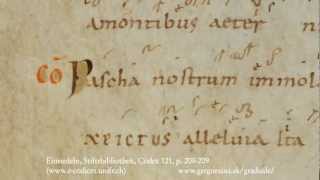 amontibus aeter n
CŌ Pascha nostrum immola
xpictus alleluia Ita
Einsiedeln, Stiftsbibliothek, Codex 121, p. 208-209
(www.e-codices.unifr.ch) www.gregorianik.uk/graduale/